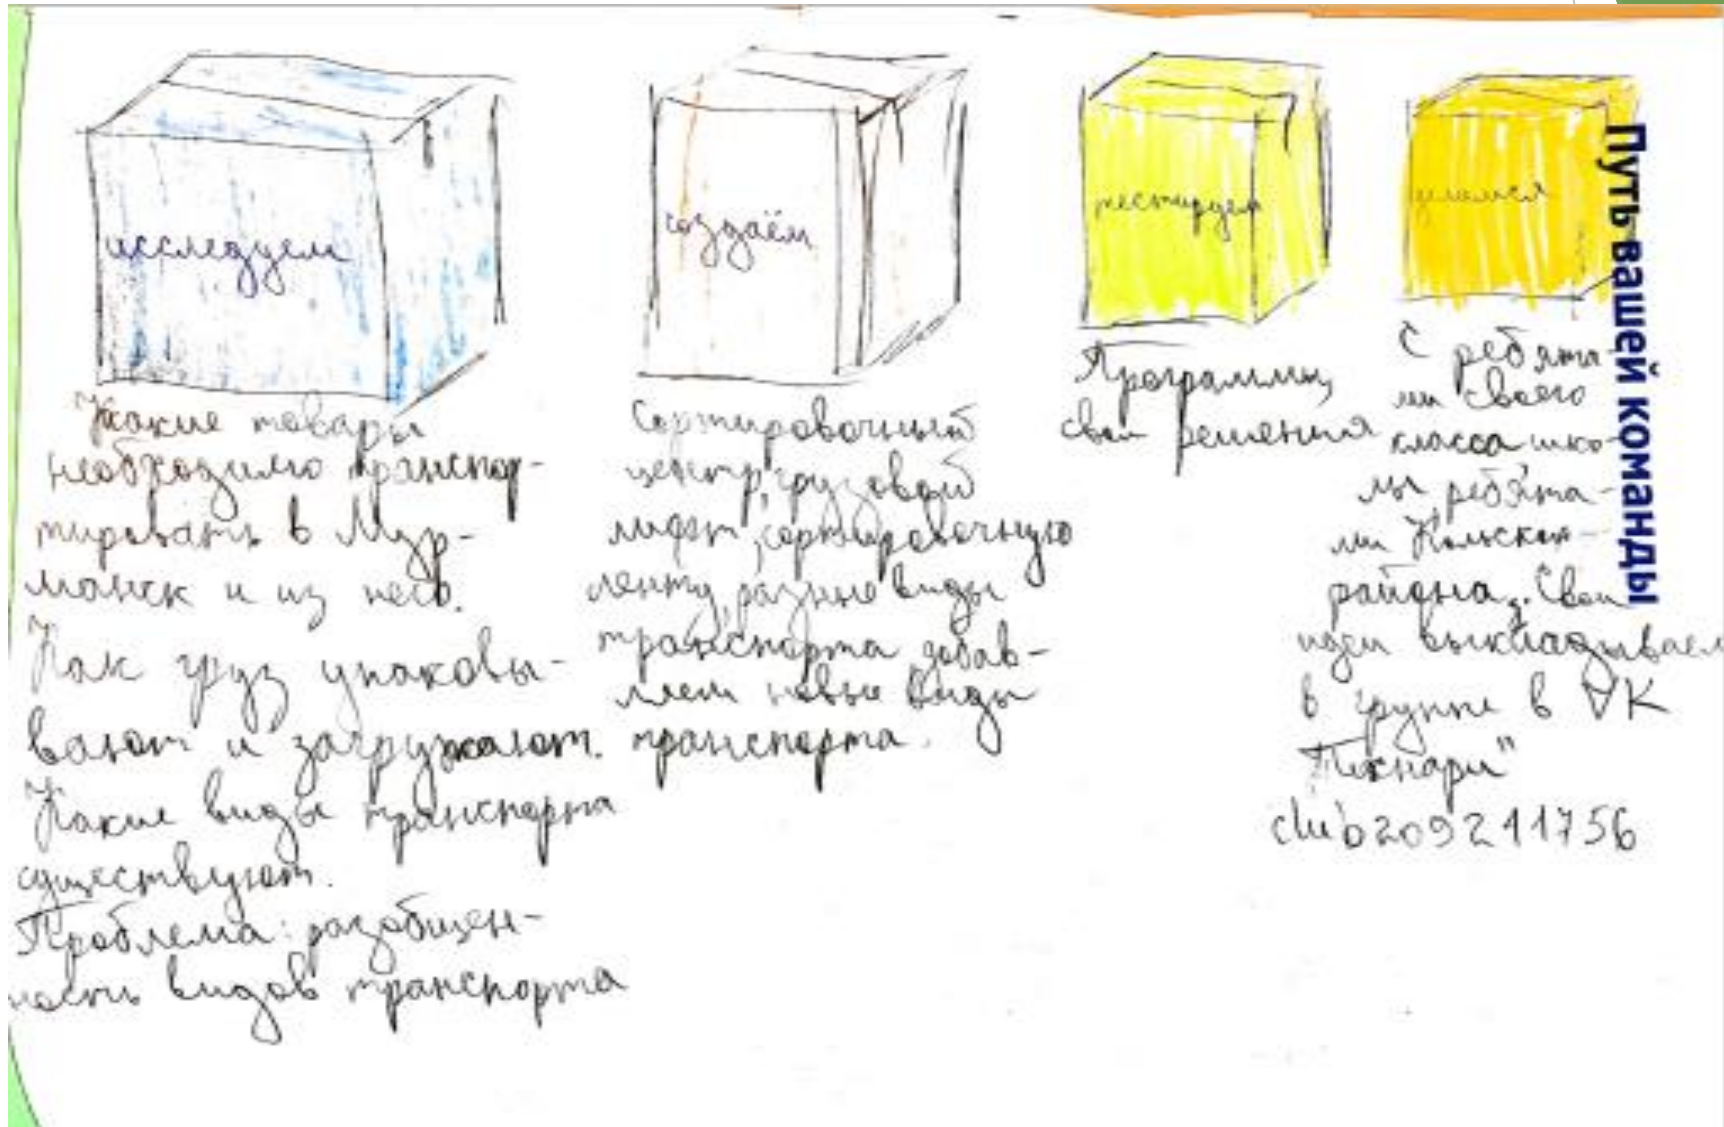 исследуем
Какие товары
необходимо транспор-
тировать в Мур-
манск и из него.
Как груз упаковы-
вают и загружают.
Какие виды транспорта
существуют.
Проблема: разобщен-
ность видов транспорта
создаём
Сортировочный
центр, грузовой
лифт, сортировочную
ленту, разные виды
транспорта добав-
ляем новые виды
транспорта.
тестируем
Программы,
свои решения
делимся
С ребята-
ми своего
класса шко-
лы ребята-
ми Кольского
района. Свои
идеи выкладываем
в группе в VK
"Технари"
club209241756
Путь вашей команды